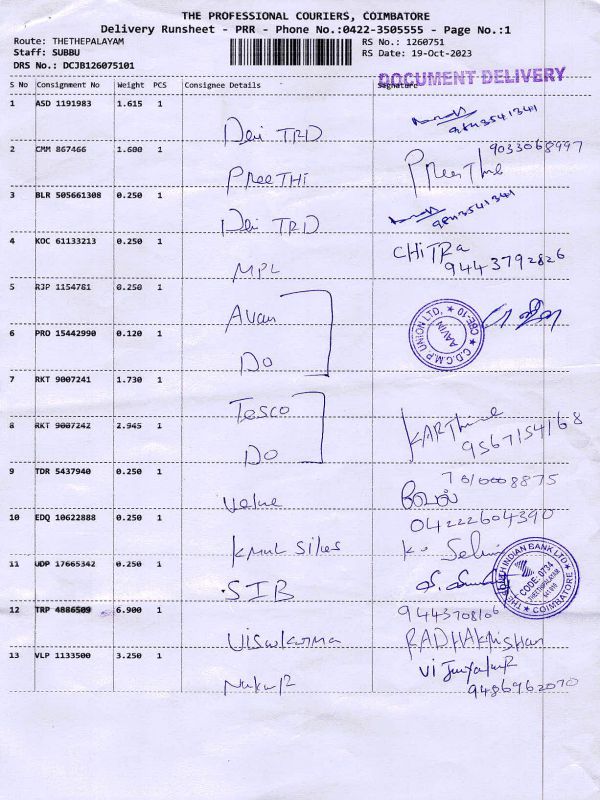 THE PROFESSIONAL COURIERS, COIMBATORE
Delivery Runsheet - PRR - Phone No.:0422-3505555 - Page No.:1
Route: THETHEPALAYAM
Staff: SUBBU
DRS No.: DCJB126075101
RS No.: 1260751
RS Date: 19-Oct-2023
DOCUMENT DELIVERY
S No Consignment No Weight PCS Consignee Details Signature
1 ASD 1191983 1.615 1
Devi TRD 9843541341
2 CMM 867466 1.600 1
PReeTHI 9033068997
3 BLR 505661308 0.250 1
Devi TRD 9843541341
4 KOC 61133213 0.250 1
MPL CHiTRa
9443792826
5 RJP 1154781 0.250 1
Avan
C.D.C.M.P UNION LTD, CBE-10
AAVIN
6 PRO 15442990 0.120 1
Do
7 RKT 9007241 1.730 1
Tesco
8 RKT 9007242 2.945 1
Do
9567154168
9 TDR 5437940 0.250 1
Value
10 EDQ 10622888 0.250 1
04222604390
11 UDP 17665342 0.250 1
SIB
THE SOUTH INDIAN BANK LTD
CODE:0734
COIMBATORE
12 TRP 4886509 6.900 1
RADHAKRishan
13 VLP 1133500 3.250 1
9486962070